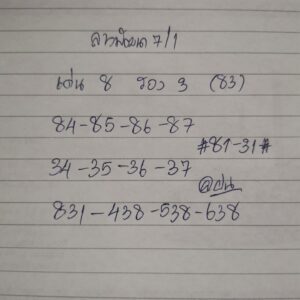 ลาวพัฒนา 7/1
เด่น 8 รอง 3 (83)
84-85-86-87
#81-31#
34-35-36-37
831-438-538-638